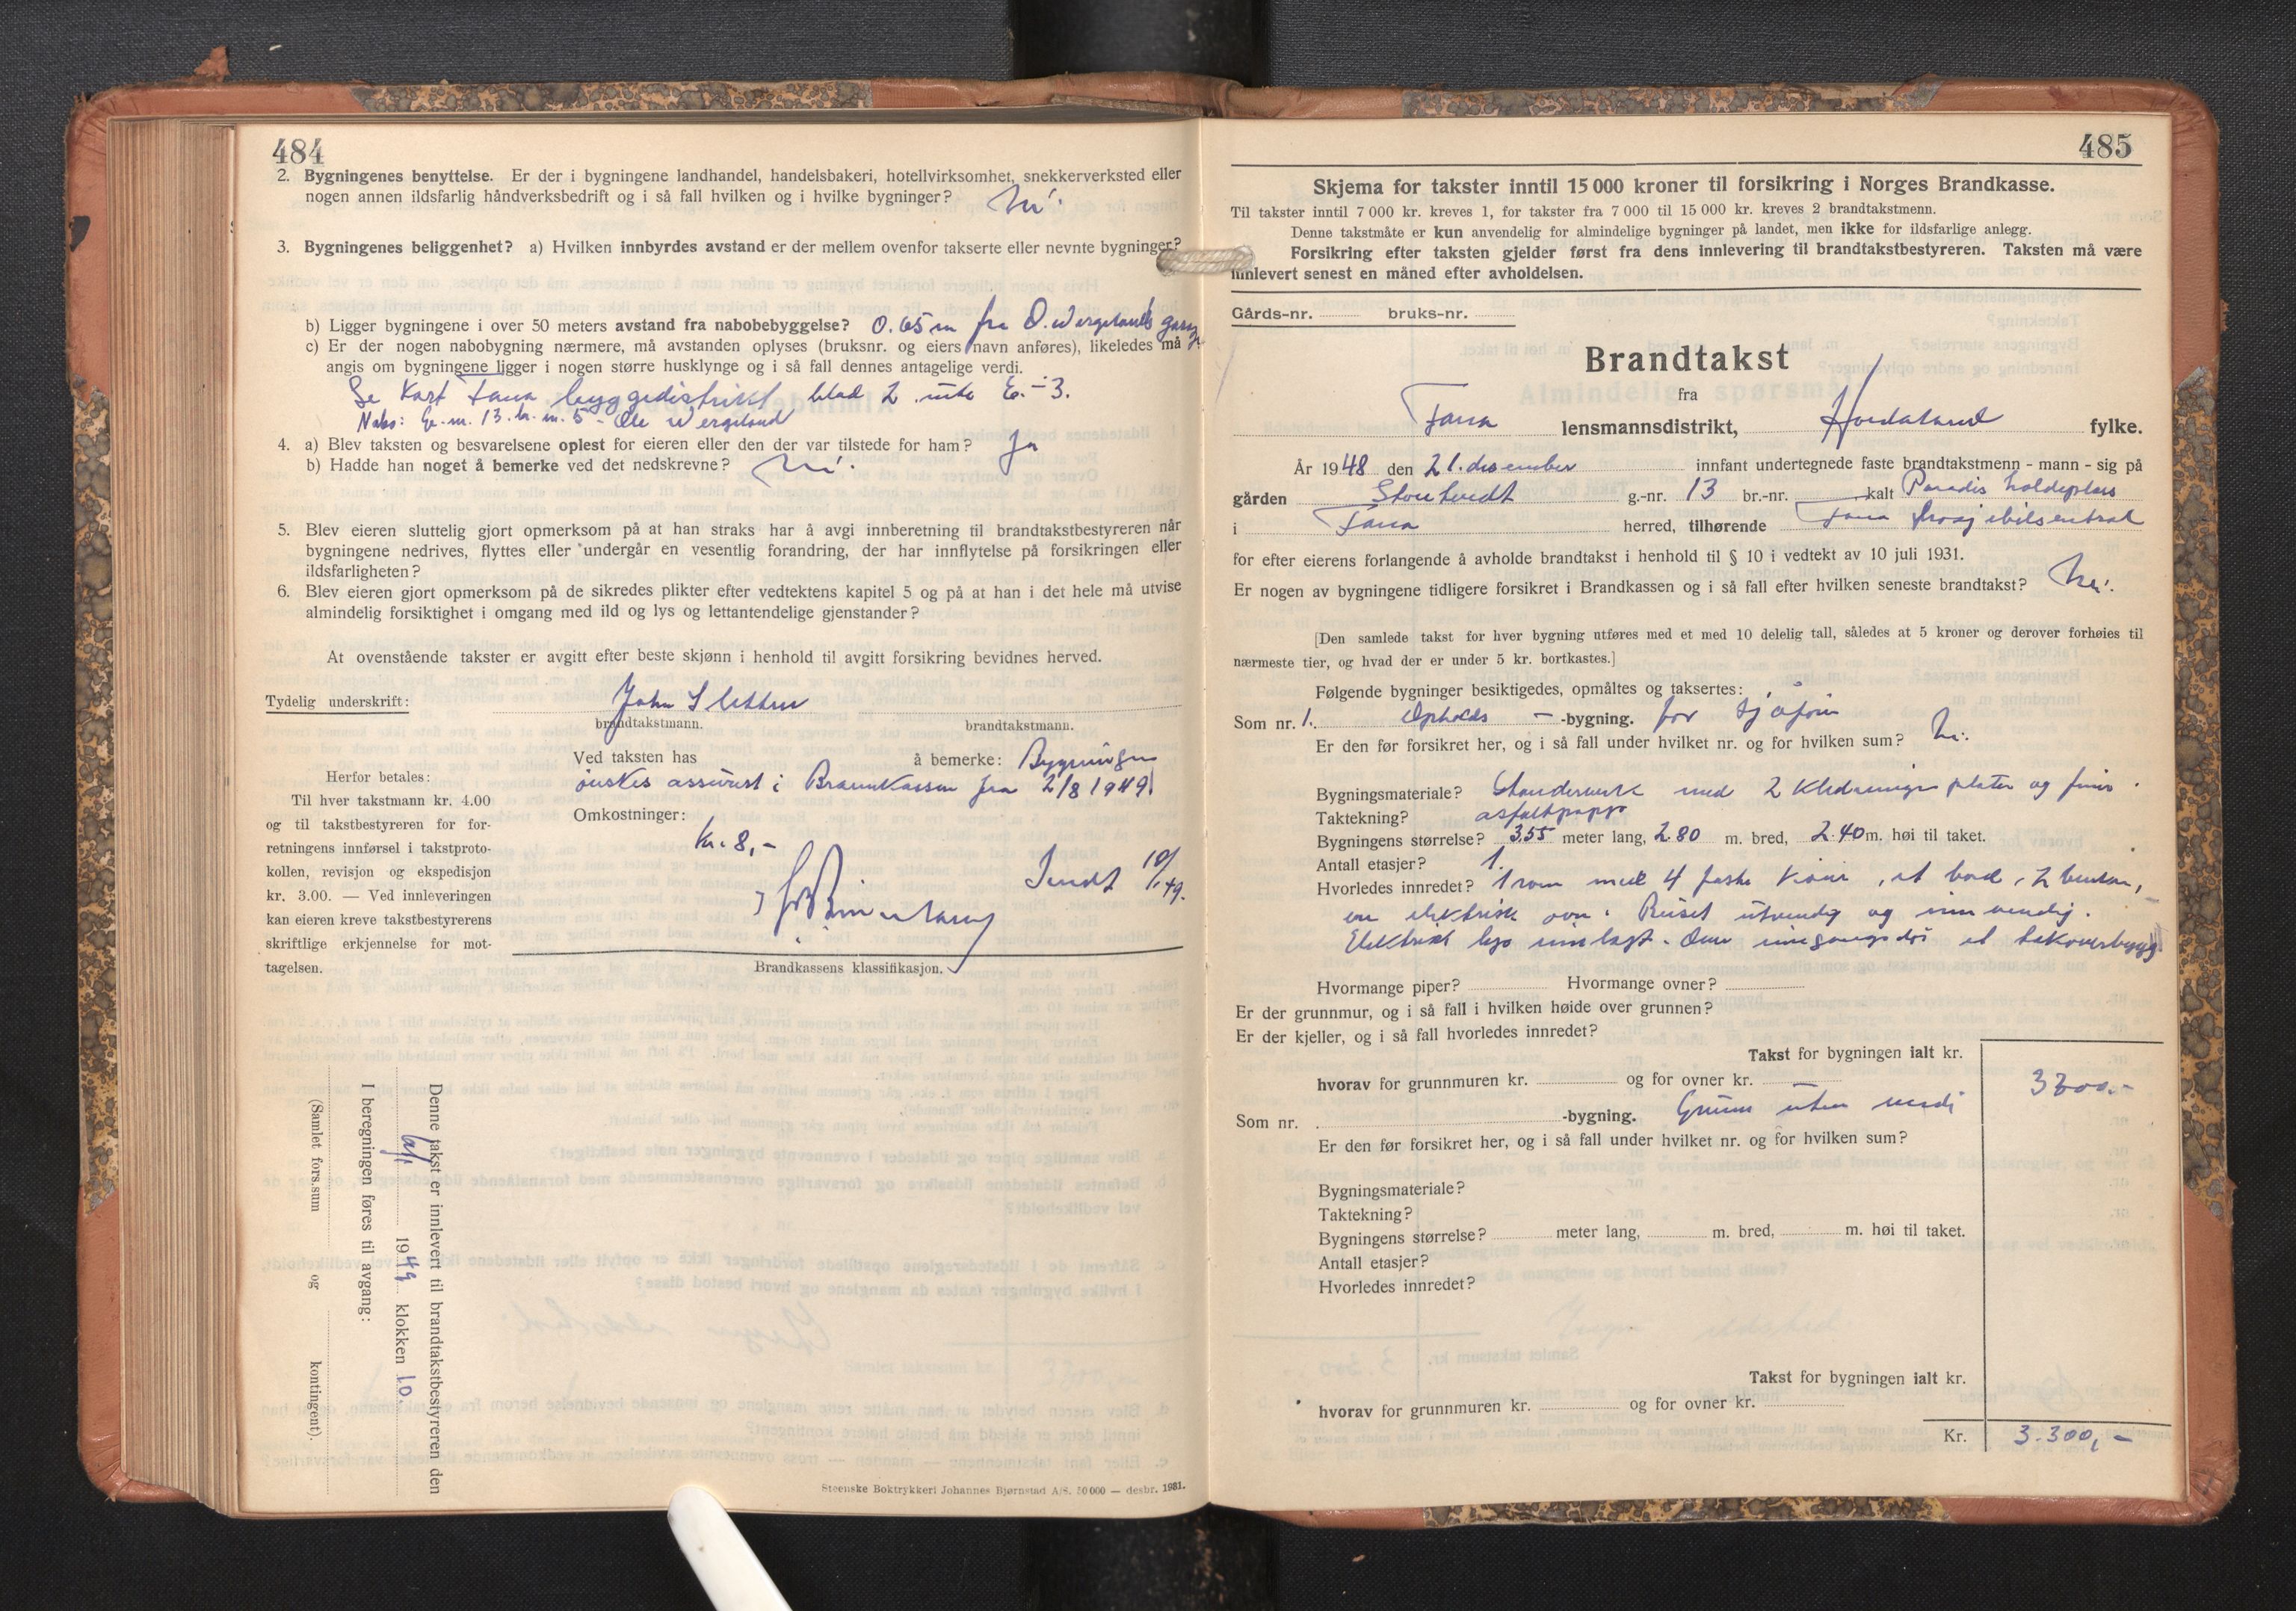 484
2. Bygningenes benyttelse. Er der i bygningene landhandel, handelsbakeri, hotellvirksomhet, snekkerverksted eller
nogen annen ildsfarlig håndverksbedrift og i så fall hvilken og i hvilke bygninger? Nei.
3. Bygningenes beliggenhet? a) Hvilken innbyrdes avstand er der mellem ovenfor takserte eller nevnte bygninger?
b) Ligger bygningene i over 50 meters avstand fra nabobebyggelse? 0.65 m fra O. Wergelands garasje
c) Er der nogen nabobygning nærmere, må avstanden oplyses (bruksnr. og eiers navn anføres), likeledes må
angis om bygningene ligger i nogen større husklynge og i så fall dennes antagelige verdi.
Se kart Fana byggedistrikt blad 2 rute E.-3.
Nabo: G.nr. 13 br. nr. 5 - Ole Wergeland
4. a) Blev taksten og besvarelsene oplest for eieren eller den der var tilstede for ham? Ja
b) Hadde han noget å bemerke ved det nedskrevne? Nei.
5. Blev eieren sluttelig gjort opmerksom på at han straks har å avgi innberetning til brandtakstbestyreren når
bygningene nedrives, flyttes eller undergår en vesentlig forandring, der har innflytelse på forsikringen eller
ildsfarligheten?
6. Blev eieren gjort opmerksom på de sikredes plikter efter vedtektens kapitel 5 og på at han i det hele må utvise
almindelig forsiktighet i omgang med ild og lys og lettantendelige gjenstander?
At ovenstående takster er avgitt efter beste skjønn i henhold til avgitt forsikring bevidnes herved.
Tydelig underskrift: John Sletten
brandtakstmann. brandtakstmann.
Ved taksten has å bemerke: Bygningen
ønskes assurert i Brannkassen fra 2/8 1949
Herfor betales:
Til hver takstmann kr. 4.00
og til takstbestyreren for for-
retningens innførsel i takstproto-
kollen, revisjon og ekspedisjon
kr. 3.00. — Ved innleveringen
kan eieren kreve takstbestyrerens
skriftlige erkjennelse for mot-
tagelsen.
Omkostninger:
Kr. 8,-
Sendt 10/1.49.
Brandkassens klassifikasjon.
Denne takst er innlevert til brandtakstbestyreren den
1949 klokken 10.
I beregningen føres til avgang:
(Samlet fors.sum og kontingent).
Steenske Boktrykkeri Johannes Bjørnstad A/S. 50000 — desbr. 1931.
485
Skjema for takster inntil 15 000 kroner til forsikring i Norges Brandkasse.
Til takster inntil 7 000 kr. kreves 1, for takster fra 7 000 til 15 000 kr. kreves 2 brandtakstmenn.
Denne takstmåte er kun anvendelig for almindelige bygninger på landet, men ikke for ildsfarlige anlegg.
Forsikring efter taksten gjelder først fra dens innlevering til brandtakstbestyreren. Taksten må være
innlevert senest en måned efter avholdelsen.
Gårds-nr. bruks-nr.
Brandtakst
fra
Fana lensmannsdistrikt, Hordaland fylke.
År 1948 den 21. desember innfant undertegnede faste brandtakstmenn - mann - sig på
gården Storetvedt g.-nr. 13 br.-nr. kalt Paradis holdeplass
i Fana herred, tilhørende Fana drosjebilsentral
for efter eierens forlangende å avholde brandtakst i henhold til § 10 i vedtekt av 10 juli 1931.
Er nogen av bygningene tidligere forsikret i Brandkassen og i så fall efter hvilken seneste brandtakst? Nei.
[Den samlede takst for hver bygning utføres med et med 10 delelig tall, således at 5 kroner og derover forhøies til
nærmeste tier, og hvad der er under 5 kr. bortkastes.]
Følgende bygninger besiktigedes, opmåltes og taksertes:
Som nr. 1. Opholds - -bygning. for sjåfører
Er den før forsikret her, og i så fall under hvilket nr. og for hvilken sum? Nei.
Bygningsmateriale? Standerverk med 2 kledninger plater og finer.
Taktekning? asfaltpapp
Bygningens størrelse? 3.55 meter lang, 2.80 m. bred, 2.40 m. høi til taket.
Antall etasjer? 1.
Hvorledes innredet? 1 rom med 4 faste køier, et bord, 2 benker,
en elektrisk ovn. Beiset utvendig og innvendig.
Elektrisk lys innlagt. Over inngangsdør et takoverbygg.
Hvormange piper? Hvormange ovner?
Er der grunnmur, og i så fall i hvilken høide over grunnen?
Er der kjeller, og i så fall hvorledes innredet?
Takst for bygningen ialt kr. 3300.-
hvorav for grunnmuren kr. og for ovner kr.
Som nr. -bygning. Grunn uten verdi
Er den før forsikret her, og i så fall under hvilket nr. og for hvilken sum?
Bygningsmateriale?
Taktekning?
Bygningens størrelse? meter lang, m. bred, m. høi til taket.
Antall etasjer?
Hvorledes innredet?
Takst for bygningen ialt kr.
hvorav for grunnmuren kr. og for ovner kr.
Kr. 3.300,-